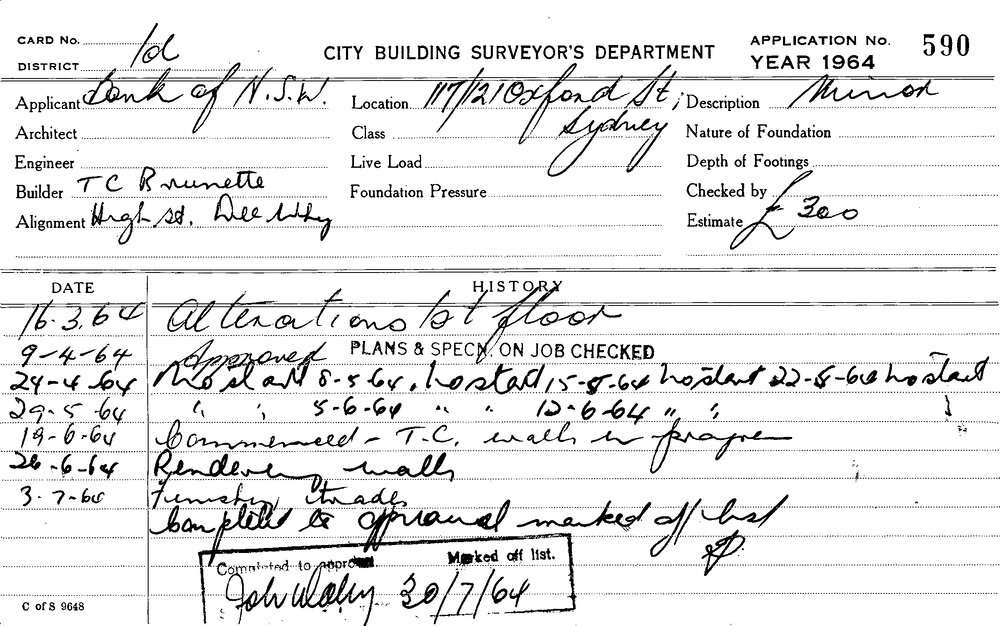 CARD No. 1d CITY BUILDING SURVEYOR'S DEPARTMENT APPLICATION No. 590
DISTRICT YEAR 1964
Applicant Bank of N.S.W. Location 117/121 Oxford St, Description Minor
Architect Class Sydney Nature of Foundation
Engineer Live Load Depth of Footings
Builder T C Brunette Foundation Pressure Checked by
Alignment High St. Dee Why Estimate £ 300
DATE HISTORY
16.3.64 Alterations 1st floor
9-4-64 Approved PLANS & SPECN. ON JOB CHECKED
24-4-64 No start 8-5-64, No start 15-5-64 No start 22-5-64 No start
29-5-64 " " 5-6-64 " " 12-6-64 " "
19-6-64 Commenced - T.C. walls in progress
26-6-64 Rendering walls
3-7-64 Finishing trades
Completed to approval marked off list
Completed to approval. Marked off list.
30/7/64
C of S 9648